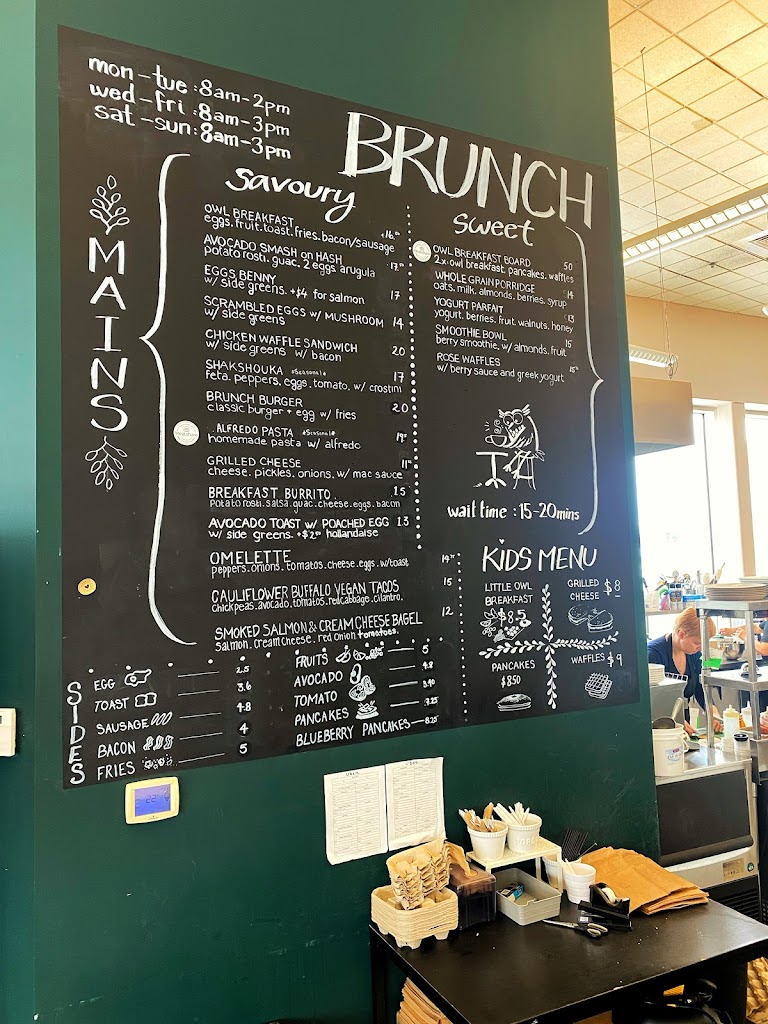 mon-tue:8am-2pm
wed-fri:8am-3pm
sat-sun:8am-3pm
BRUNCH
MAINS
Savoury
OWL BREAKFAST
eggs.fruit.toast.fries.bacon/sausage
AVOCADO SMASH on HASH
potato rosti. guac. 2 eggs arugula 17
EGGS BENNY
w/ side greens. +$4 for salmon 17
SCRAMBLED EGGS w/ MUSHROOM 14
w/ side greens
CHICKEN WAFFLE SANDWICH 20
w/ side greens w/ bacon
SHAKSHOUKA *Seasonal* 17
feta. peppers. eggs. tomato. w/ crostini
BRUNCH BURGER 20
classic burger + egg w/ fries
ALFREDO PASTA *Seasonal* 19
homemade pasta w/ alfredo
GRILLED CHEESE 11
cheese. pickles. onions. w/ mac sauce
BREAKFAST BURRITO 15
potato rosti. salsa. guac. cheese. eggs. bacon
AVOCADO TOAST w/ POACHED EGG 13
w/ side greens. +$2 hollandaise
OMELETTE 14
peppers. onions. tomatos. cheese. eggs. w/toast
CAULIFLOWER BUFFALO VEGAN TACOS 15
chickpeas. avocado. tomatos. red cabbage. cilantro.
SMOKED SALMON & CREAM CHEESE BAGEL 12
salmon. cream cheese. red onion tomatoes.
sweet
OWL BREAKFAST BOARD 50
2x owl breakfast. pancakes. waffles
WHOLE GRAIN PORRIDGE 14
oats. milk. almonds. berries. syrup
YOGURT PARFAIT 13
yogurt. berries. fruit. walnuts. honey
SMOOTHIE BOWL 15
berry smoothie. w/ almonds. fruit
ROSE WAFFLES
w/ berry sauce and greek yogurt
wait time : 15-20mins
KiDS MENU
LITTLE OWL BREAKFAST $8.5
GRILLED CHEESE $8
PANCAKES $8.50
WAFFLES $9
SIDES
EGG 2.5
TOAST 3.6
SAUSAGE 4.8
BACON 4
FRIES 5
FRUITS 5
AVOCADO 4.8
TOMATO 3.40
PANCAKES 7.25
BLUEBERRY PANCAKES 8.25